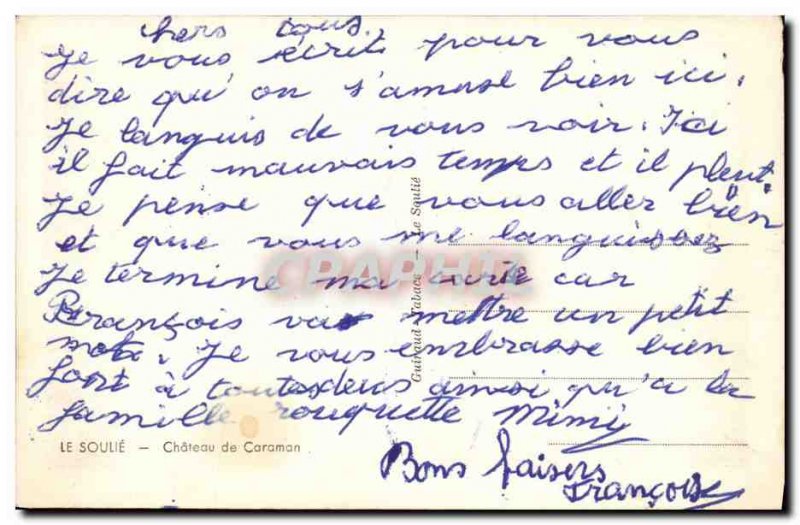 chers tous.
Je vous écrit pour vous
dire qu'on s'amuse bien ici.
Je languis de vous voir. Ici
il fait mauvais temps et il pleut.
Je pense que vous aller bien
et que vous me languissez
Je termine ma carte car
François va mettre un petit
mot. Je vous embrasse bien
fort à toutes deux ainsi qu'a la
famille rouquette Mimi
Bons baisers
François
LE SOULIÉ — Château de Caraman
Guiraud - Tabacs — Le Soulié
CRAPHIL